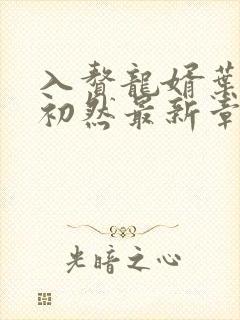 入贅龍婿葉
初然最新章
光暗之心